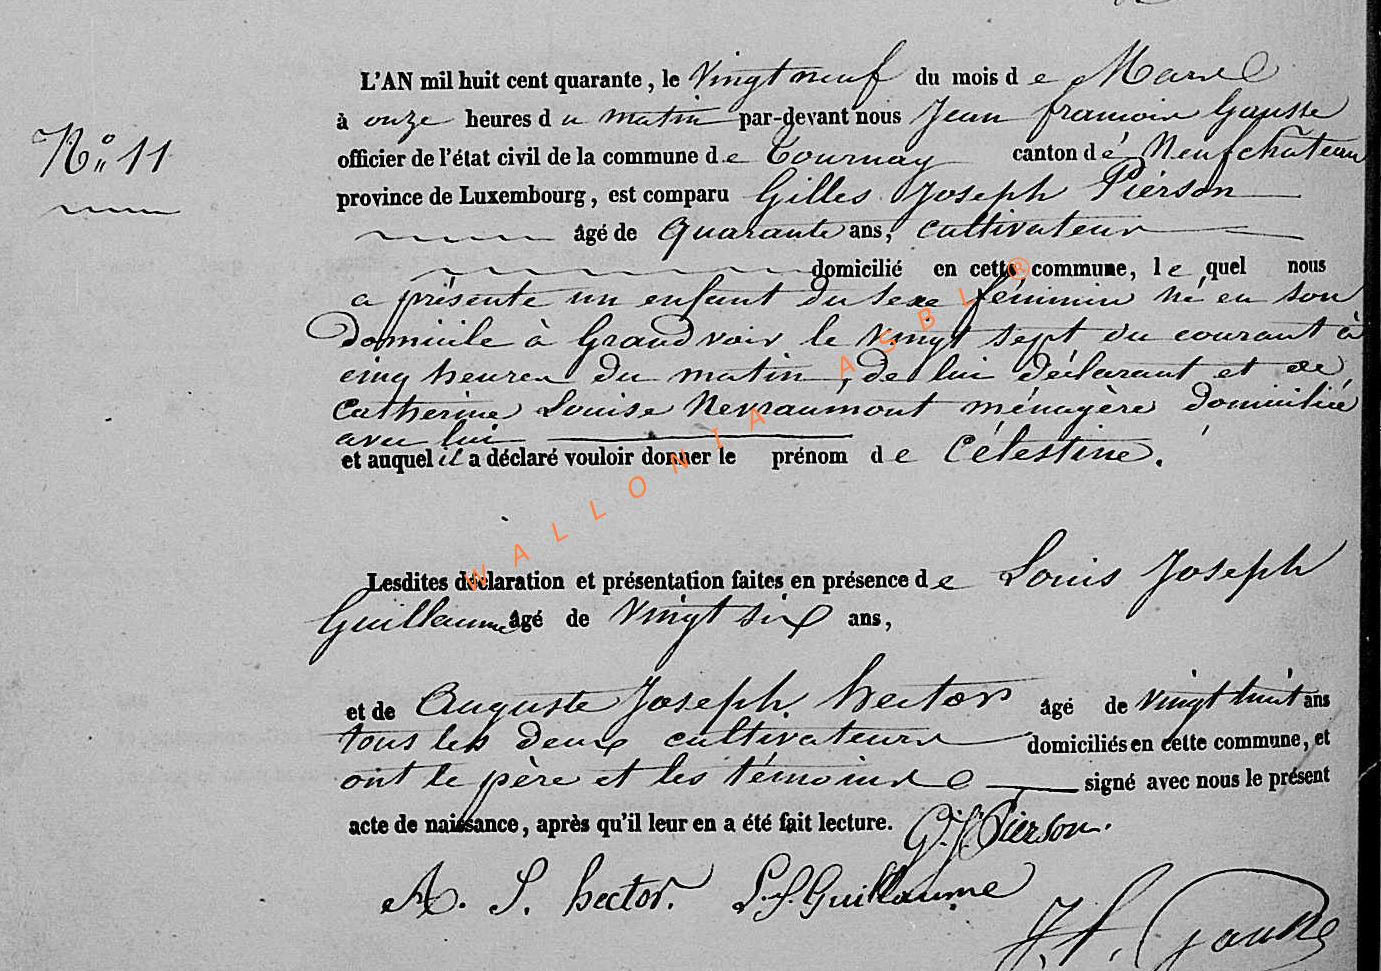 L'AN mil huit cent quarante, le vingt neuf du mois de Mars
à onze heures du matin par-devant nous Jean françois Gausse
N° 11
officier de l'état civil de la commune de Tournay canton de Neufchâteau
province de Luxembourg, est comparu Gilles Joseph Piérson
âgé de Quarante ans, cultivateur
domicilié en cette commune, le quel nous
a présente un enfant du sexe féminin né en son
Domicile à Grandvoir le vingt sept du courant à
cinq heures du matin, de lui déclarant et de
Catherine Louise Nevraumont ménagère domiciliée
avec lui
et auquel il a déclaré vouloir donner le prénom de Célestine.
Lesdites déclaration et présentation faites en présence de Louis Joseph
Guillaume âgé de vingt six ans,
et de Auguste Joseph hector âgé de vingt huit ans
tous les deux cultivateurs domiciliés en cette commune, et
ont le père et les témoins signé avec nous le présent
acte de naissance, après qu'il leur en a été fait lecture. G. J. Pierson.
A. J. hector. L. J. Guillaume
J. f. Gausse
WALLONIA ASBL ®